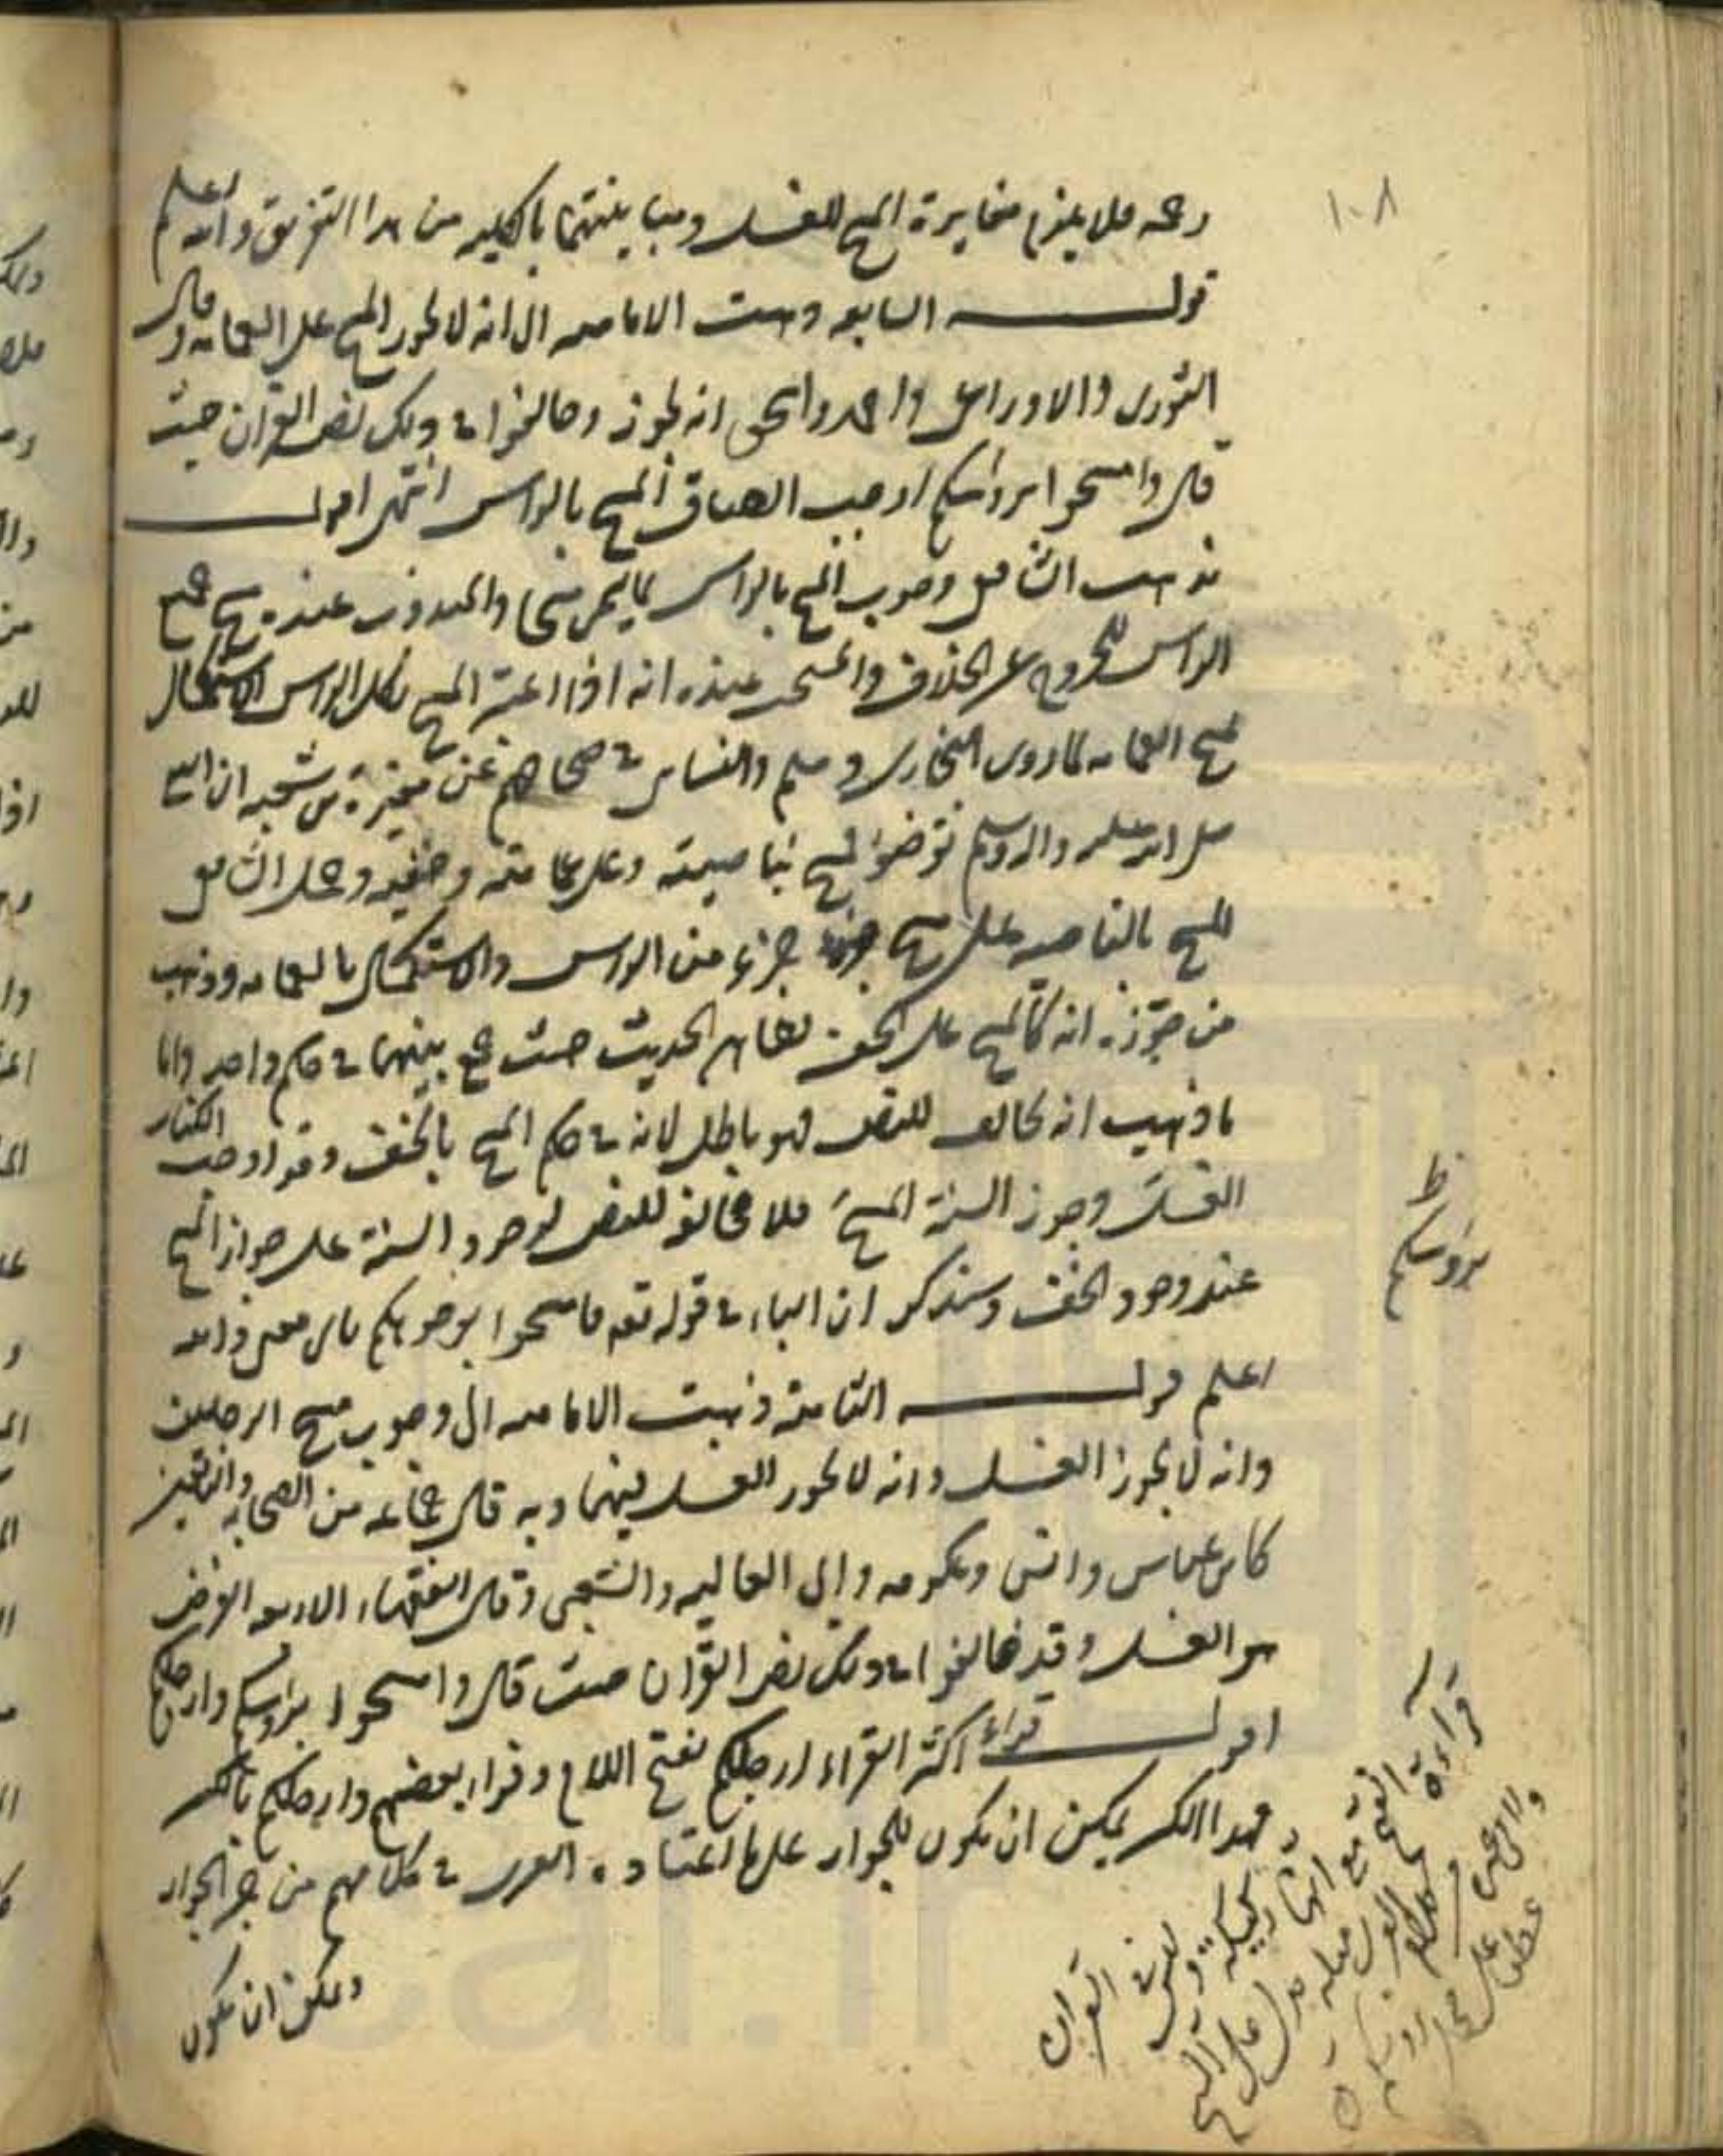 ١٠٨
فلا يلزم مغايرة المسح للغسل ومباينتهما بالكليه من هذا التفريق والله اعلم
قوله السابعه ذهبت الاماميه الى انه لا يجوز المسح على العمامه وقال
الثورى والاوزاعى واحمد واسحق انه يجوز وخالفوا فى ذلك نص القران حيث
قال وامسحوا برؤسكم اوجب الصاق المسح بالراس انتهى اقول
مذهب الشافعى وجوب المسح بالراس بما يسمى مسحا والمندوب عنده مسح جميع
الراس للخروج عن الخلاف والمستحب عنده انه اذا المسح بكل الراس الاستكمال
بمسح العمامه لما روى البخارى ومسلم والنسائى فى صحاحهم عن مغيرة بن شعبه ان النبى
صلى الله عليه واله وسلم توضؤ فمسح بناصيته وعلى عمامته وخفيه وحمل الشافعى
المسح بالناصيه على مسح جزء من الراس والاستكمال بالعمامه وذهب
من جوزه انه كالمسح على الخف لظاهر الحديث حيث جمع بينهما فى حكم واحد واما
ما ذهب انه يخالف للنص فهو باطل لانه فى حكم المسح بالخف وقد اوجب الكتاب
الغسل وجوز السنة المسح فلا مخالفه للنص لوجود السنة على جواز المسح
عند وجود الخف وسنذكر ان الباء فى قوله تعه فامسحوا بوجوهكم باى معنى والله
اعلم قوله الثامنة ذهبت الاماميه الى وجوب مسح الرجلين
وانه لا يجوز الغسل وانه لا يجوز الغسل فيهما وبه قال جماعه من الصحابه والتابعين
كابن عباس وانس وعكرمه وابى العاليه والشعبى وقال الفقهاء الاربعه الفرض
هو الغسل وقد خالفوا فى ذلك نص القران حيث قال وامسحوا برؤسكم وارجلكم
اقول قراء اكثر القراء ارجلكم بفتح اللام وقراء بعضهم وارجلكم بالكسر
وهذا الكسر يمكن ان يكون للجوار على ما اعتاده العرب فى كلامهم من جر الجوار
ويمكن ان يكون
ظ
برؤسكم
قراءة الفتح مع
فى القران
على المسح